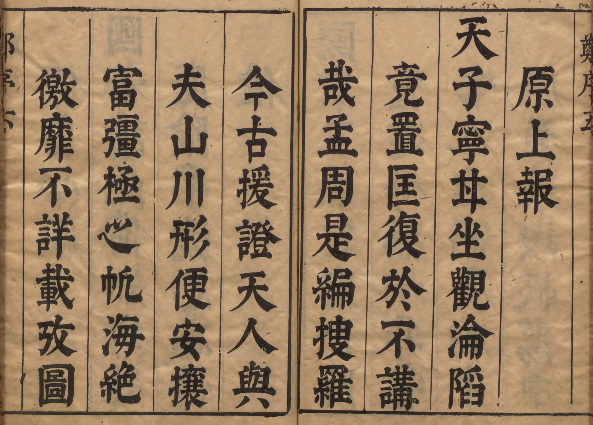 原上報
天子寧甘坐觀淪陷
竟置匡復於不講
哉孟周是編搜羅
今古援證天人與
夫山川形便安攘
富彊極之帆海絶
徼靡不詳載攷圖